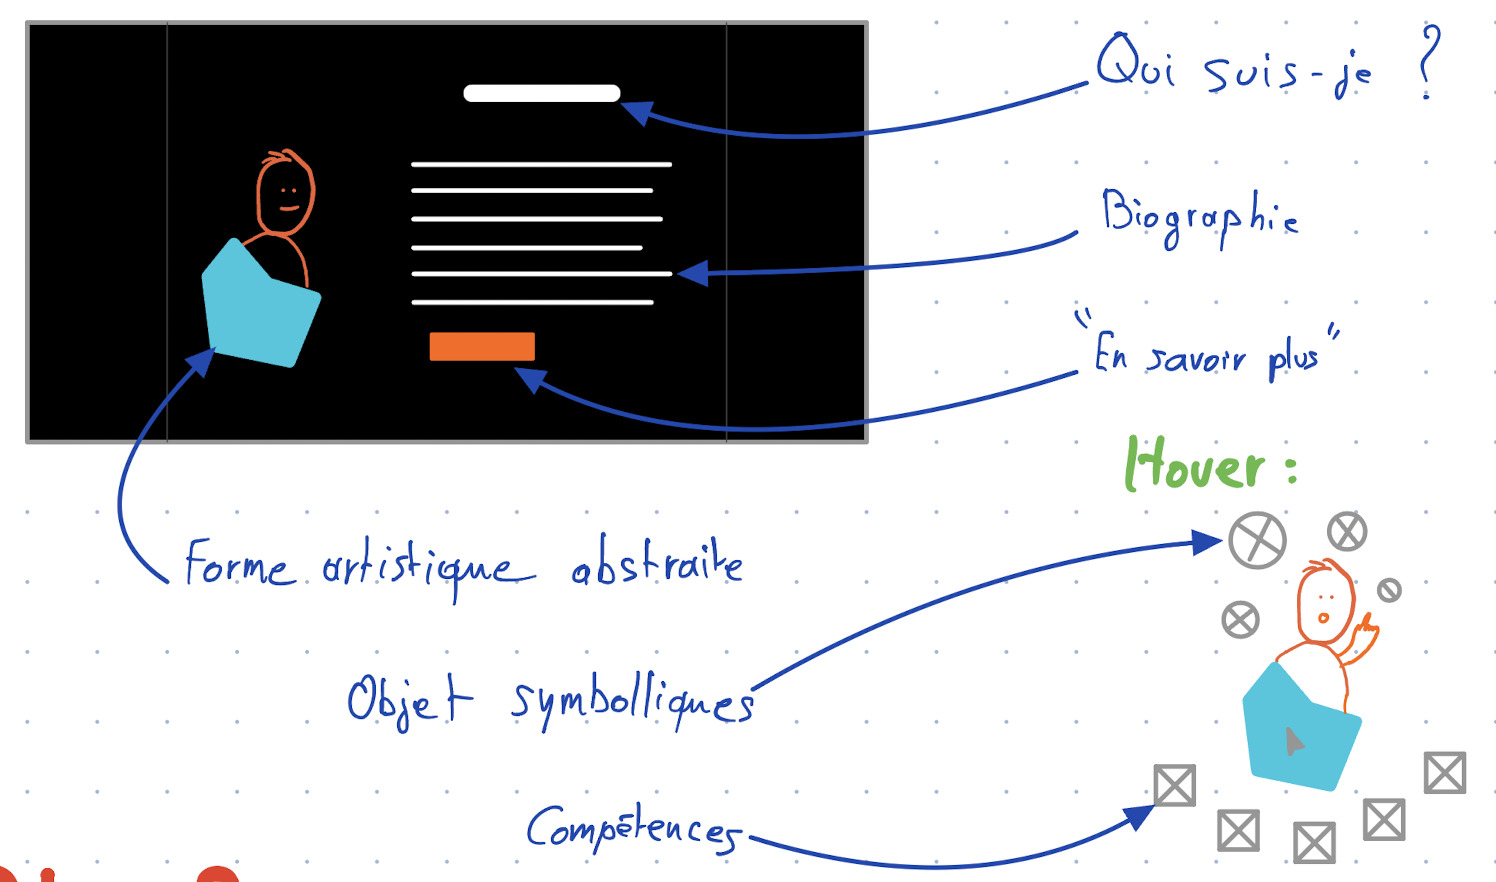 Qui suis-je ?
Biographie
"En savoir plus"
Hover :
Forme artistique abstraite
Objet symbolliques
Compétences